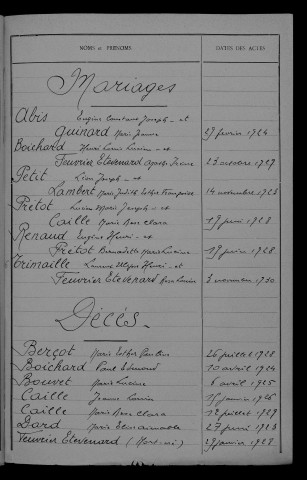 NOMS et PRÉNOMS DATES DES ACTES
Mariages
Abis Eugène Constant Joseph - et
Guinard Marie Jeanne 27 février 1924
Boichard Henri Louis Lucien - et
Feuvrier Etevenard Agathe Irène 23 octobre 1927
Petit Léon Joseph - et
Lambert Marie Judith Esther Françoise 14 novembre 1928
Prétot Lucien Marie Joseph - et
Caille Marie Rose Clara 1928
Renaud Eugène Henri - et
Prétot Bernadette Marie Lucienne 1928
Trimaille Henri - et
Feuvrier Etevenard Rose Louise 3 novembre 1930
Décès.
Berçot Marie Esther Pauline 26 juillet 1928
Boichard Paul Edouard 10 avril 1924
Bouvet Marie Lucienne 6 avril 1925
Caille Jeanne Louise 15 janvier 1926
Caille Marie Rose Clara 12 juillet 1929
Dard Marie 27 1928
Feuvrier Etevenard (Mort-né) 29 janvier 1928